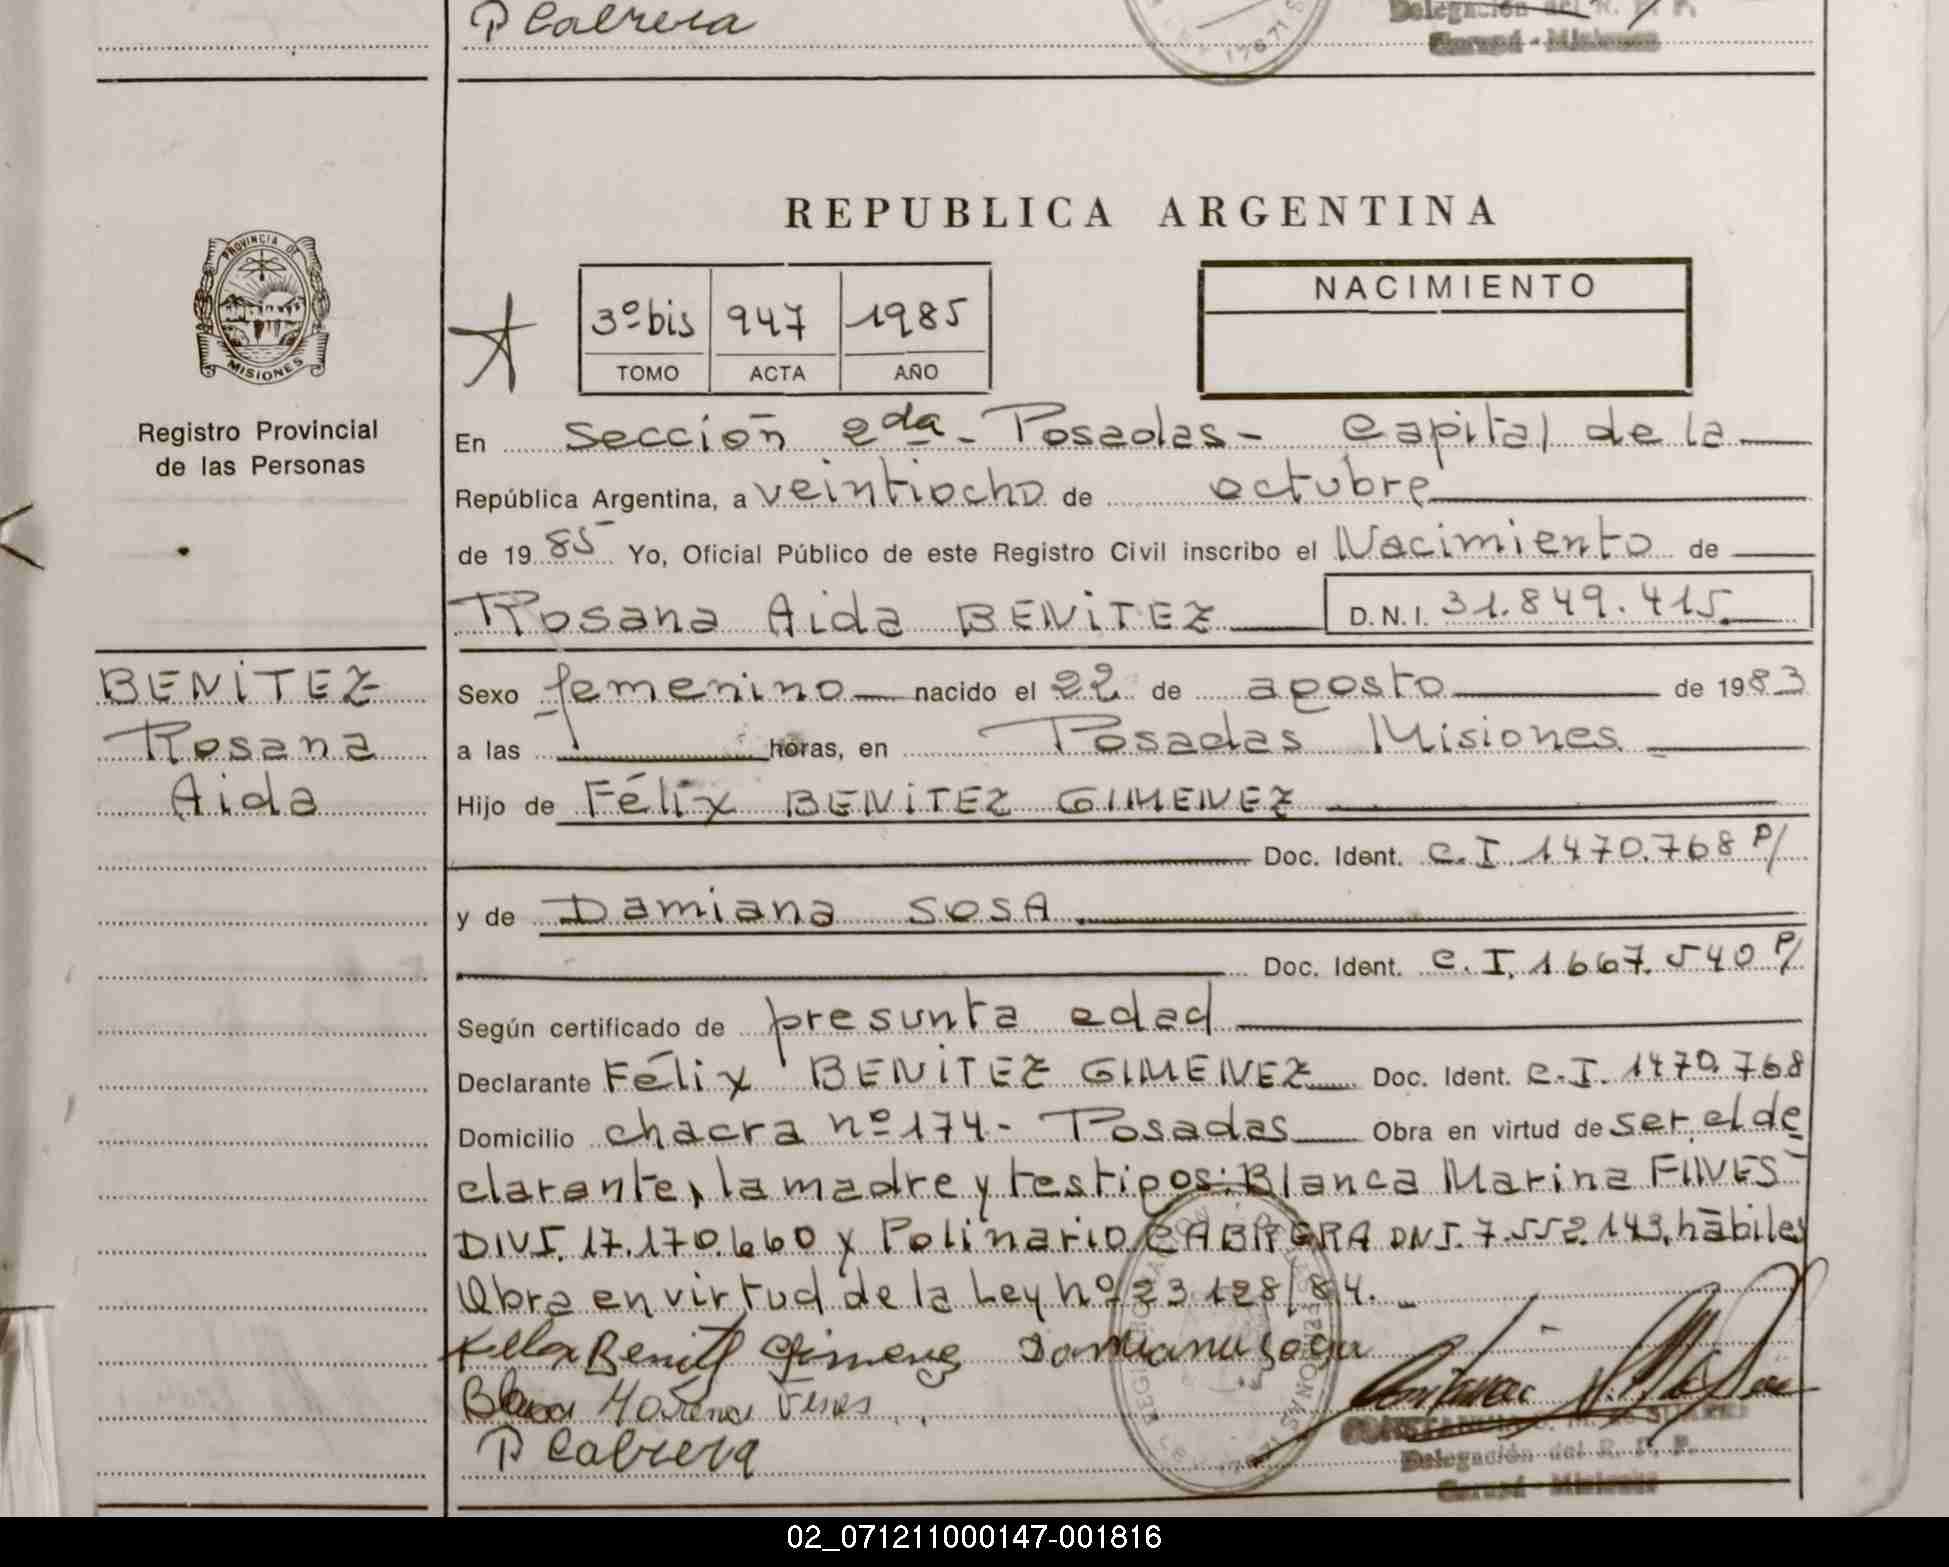 P Cabrera
Delegación del R. P. P.
Garupá - Misiones
REPUBLICA ARGENTINA
PROVINCIA DE
MISIONES
Registro Provincial
de las Personas
3º bis 947 1985
TOMO ACTA AÑO
NACIMIENTO
En Sección 2da - Posadas - Capital de la
República Argentina, a veintiocho de octubre
de 1985 Yo, Oficial Público de este Registro Civil inscribo el Nacimiento de
Rosana Aida BENITEZ D.N.I. 31.849.415
BENITEZ
Rosana
Aida
Sexo femenino nacido el 22 de agosto de 1983
a las horas, en Posadas Misiones
Hijo de Félix BENITEZ GIMENEZ
Doc. Ident. C.I 1470.768 P/
y de Damiana SOSA
Doc. Ident. C.I. 1667.540 P/
Según certificado de presunta edad
Declarante Félix BENITEZ GIMENEZ Doc. Ident. C.I. 1470.768
Domicilio chacra nº 174 - Posadas Obra en virtud de ser el de
clarante, la madre y testigos: Blanca Marina FUVES
DNI. 17.170.660 y Polinario CABRERA DNI. 7.552.143, hábiles
Obra en virtud de la Ley nº 23 128/84.
Benitez Gimenez Damiana Sosa
Blanca
P Cabrera
Delegación del R. P. P.
Garupá - Misiones
02_071211000147-001816